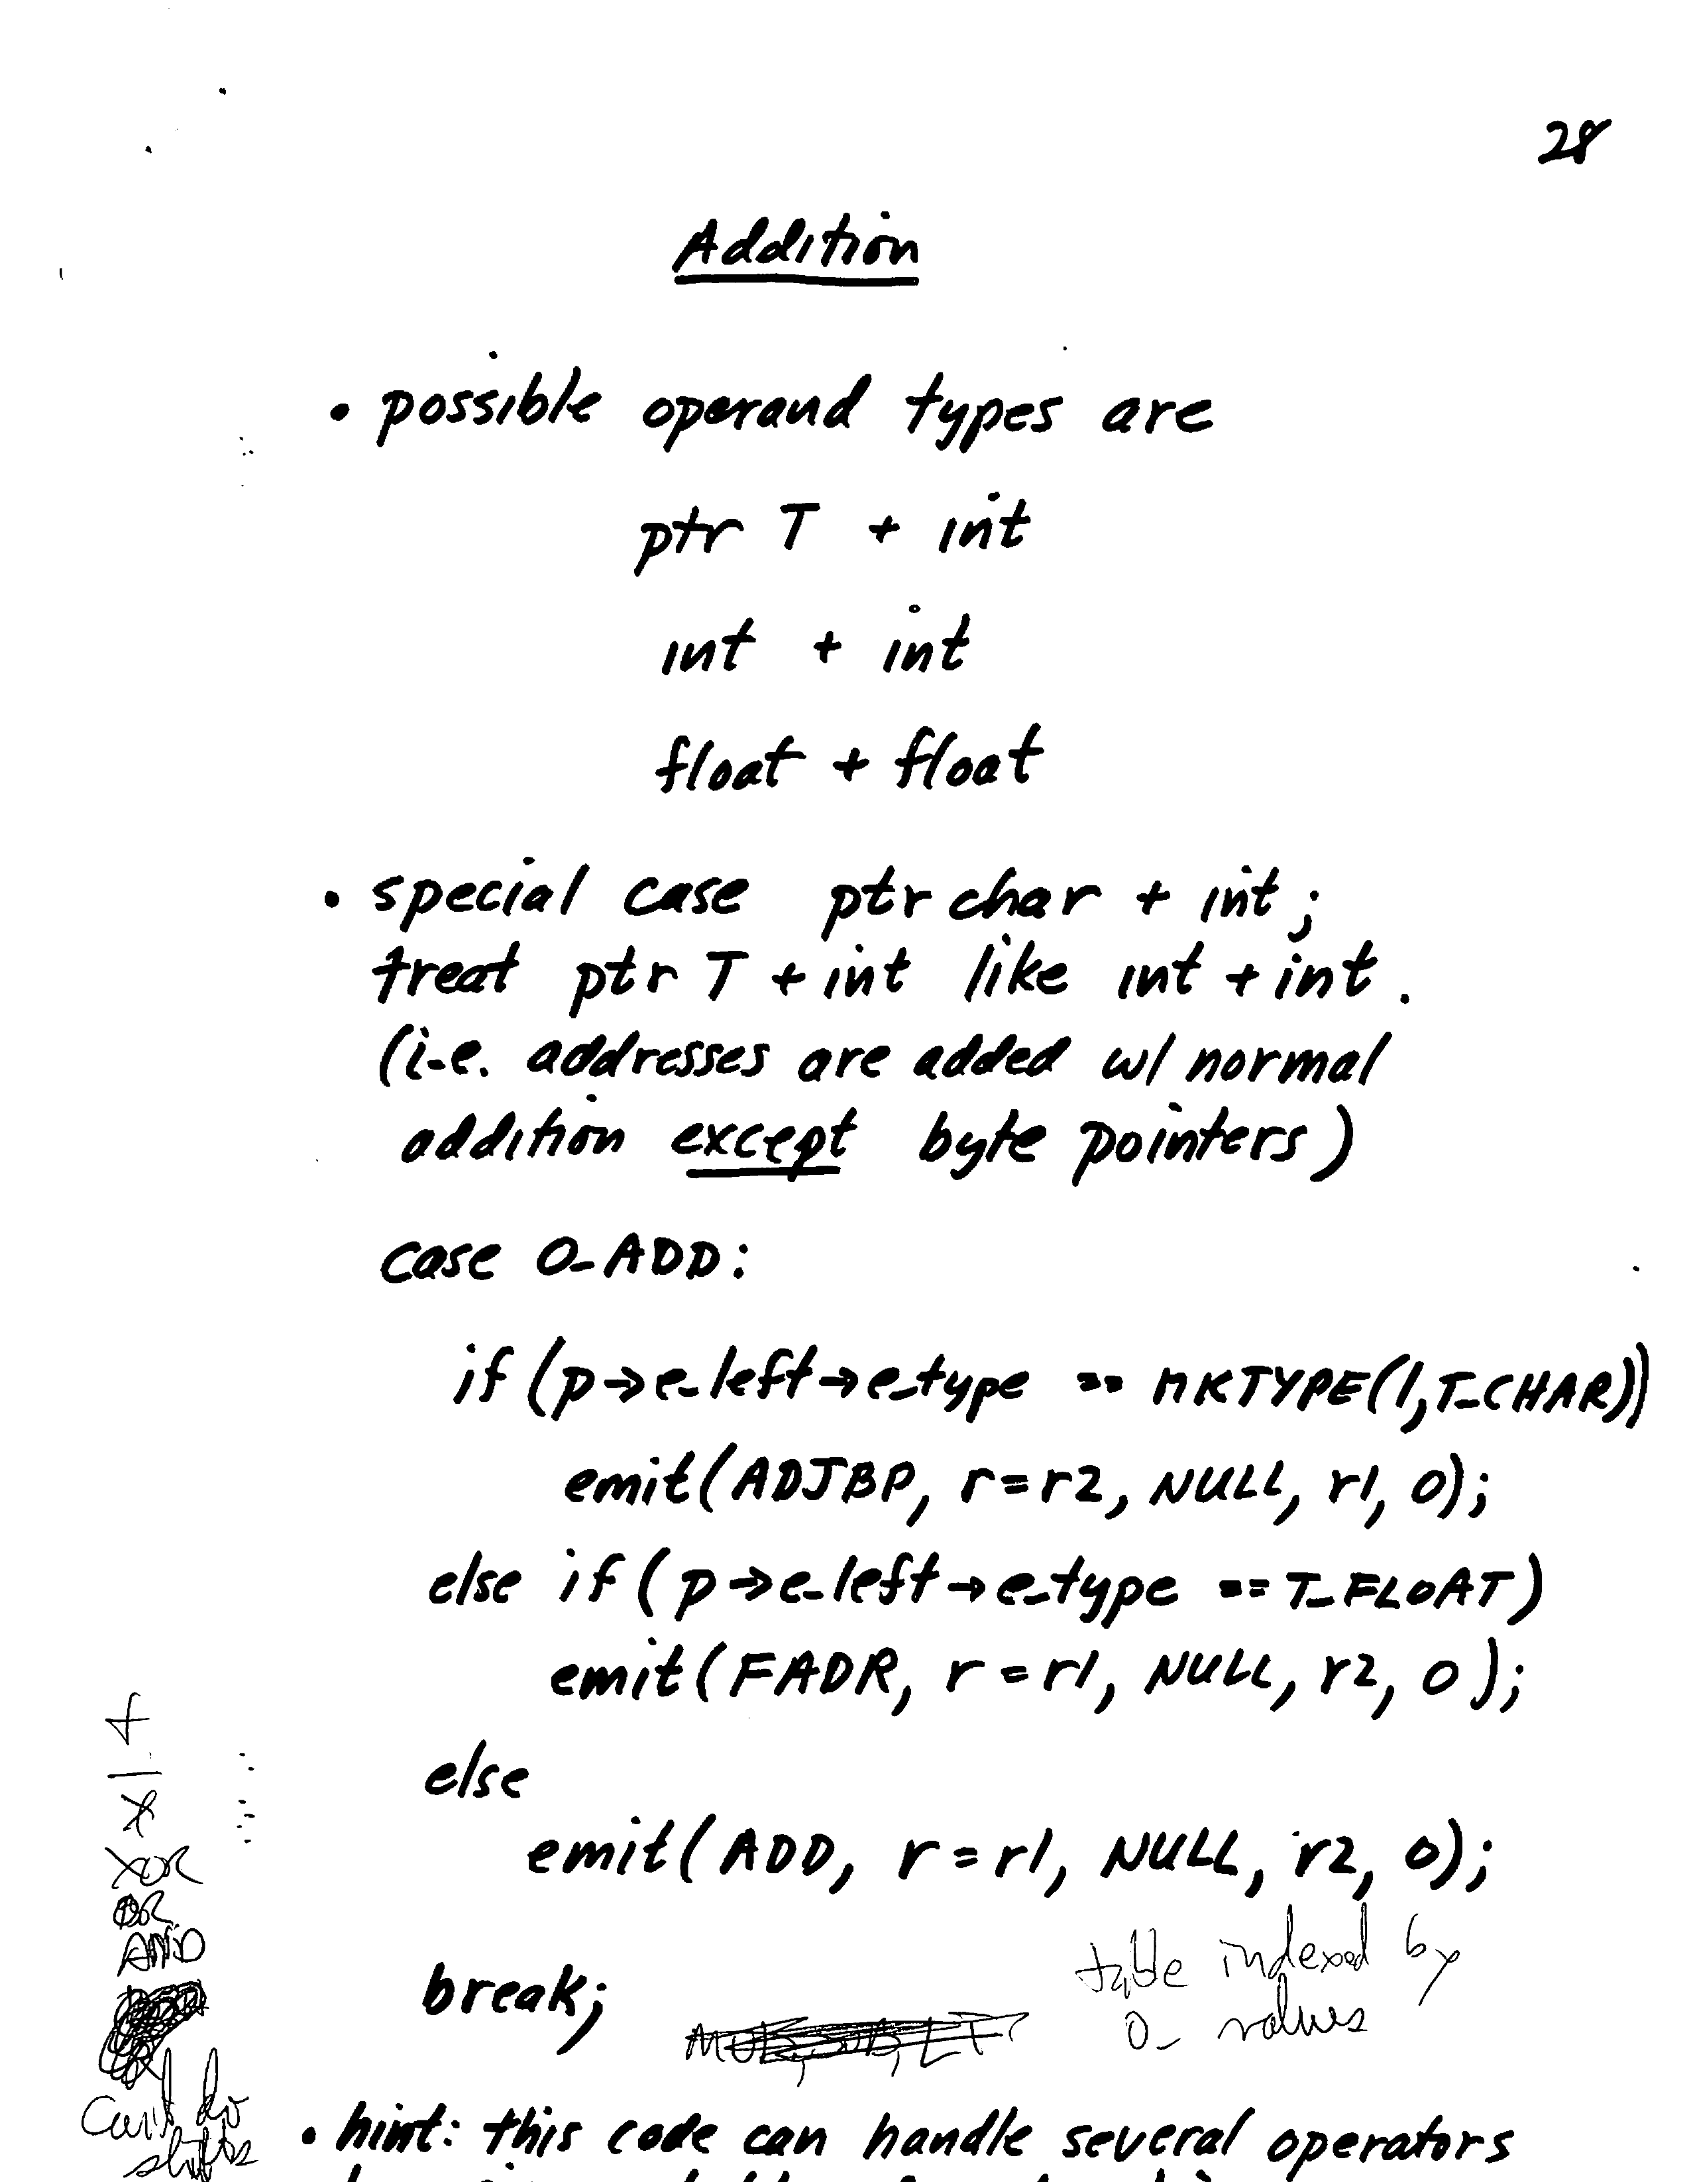 28
Addition
• possible operand types are
ptr T + int
int + int
float + float
• special case ptr char + int;
treat ptr T + int like int + int.
(i.e. addresses are added w/ normal
addition except byte pointers)
case O_ADD:
if (p->e_left->e_type == MKTYPE(1,T_CHAR))
emit(ADJBP, r=r2, NULL, r1, 0);
else if (p->e_left->e_type == T_FLOAT)
emit(FADR, r=r1, NULL, r2, 0);
else
emit(ADD, r=r1, NULL, r2, 0);
break;
table indexed by
O_ values
+
*
XOR
OR
AND
can't do
shifts
• hint: this code can handle several operators